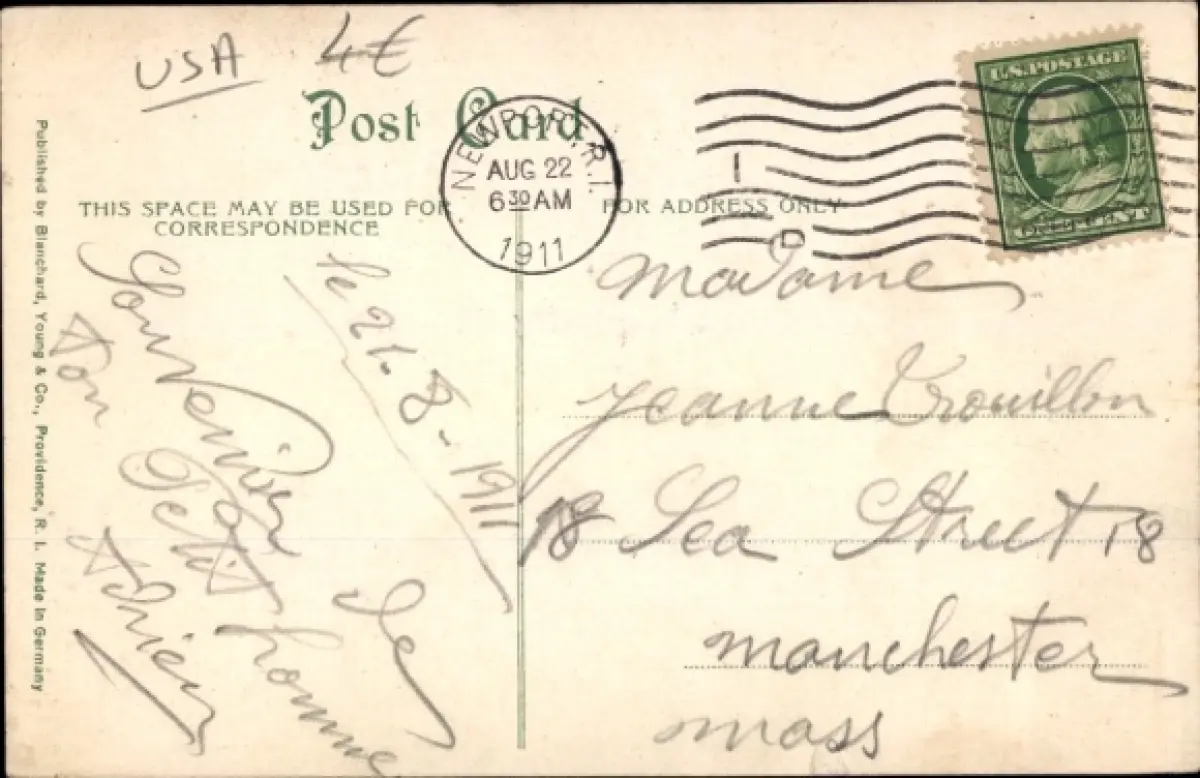 USA 4€
Post Card
NEWPORT, R.I.
AUG 22
6 30 AM
1911
1
D
U.S. POSTAGE
ONE CENT
THIS SPACE MAY BE USED FOR
CORRESPONDENCE
FOR ADDRESS ONLY
Published by Blanchard, Young & Co., Providence, R. I. Made in Germany
le 21-8-1911
Souvenir de
ton Petit homme
Adrien
Madame
Jeanne Trouillon
18 Sea Street 18
Manchester
Mass